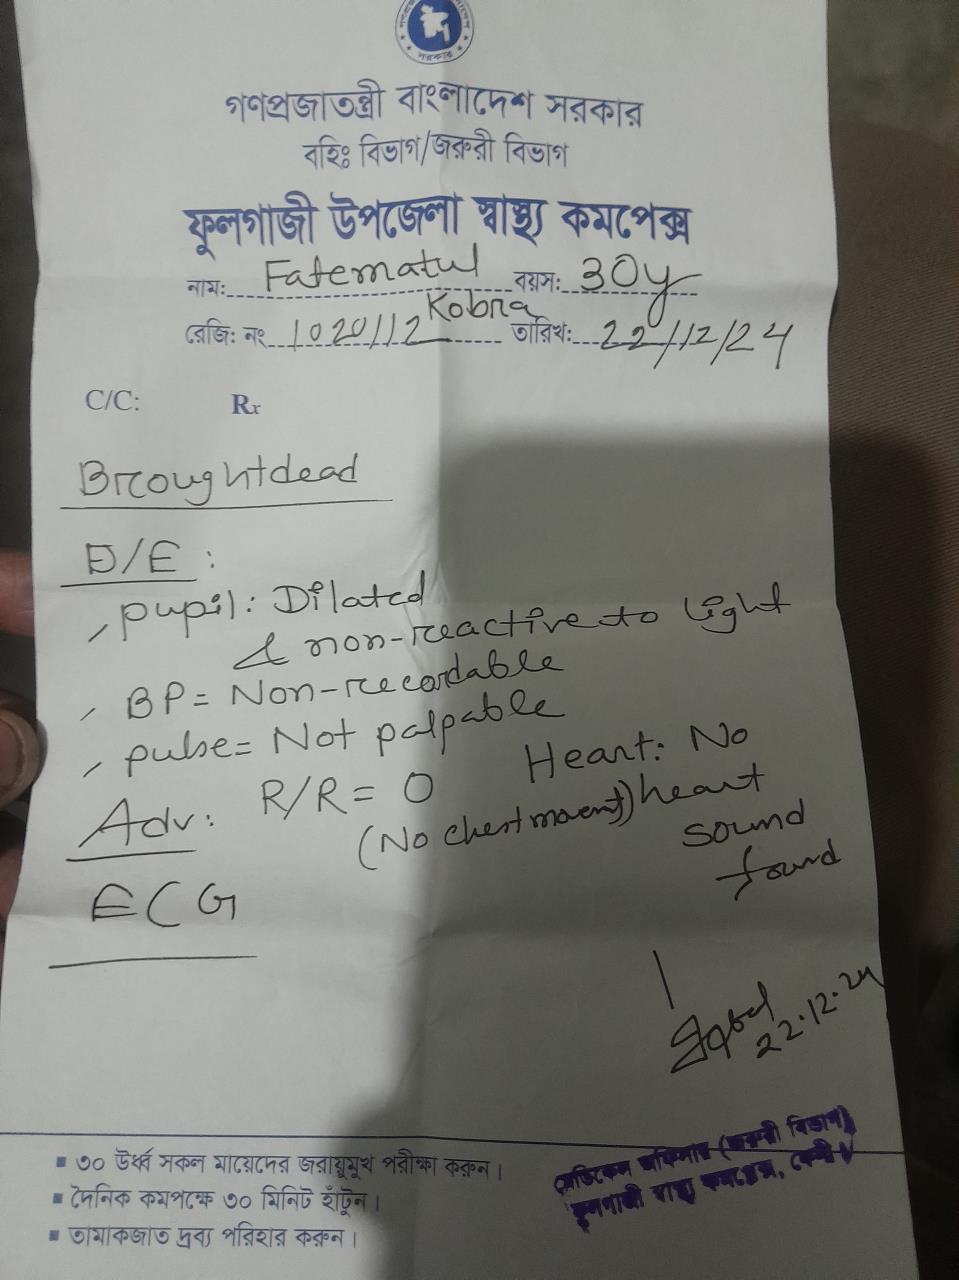 গণপ্রজাতন্ত্রী বাংলাদেশ সরকার
বহিঃ বিভাগ/জরুরী বিভাগ
ফুলগাজী উপজেলা স্বাস্থ্য কমপেক্স
নাম: Fatematul Kobra বয়স: 30y
রেজি: নং 1020112 তারিখ: 22/12/24
C/C: Rx
Broughtdead
O/E:
, pupil: Dilated
& non-reactive to light
, BP = Non-recordable
, pulse = Not palpable
R/R = 0 Heart: No
Adv: (No chest movent) heart
sound
found
ECG
22.12.24
মেডিকেল অফিসার (জরুরী বিভাগ)
ফুলগাজী স্বাস্থ্য কমপ্লেক্স, ফেনী।
▪ ৩০ উর্ধ্ব সকল মায়েদের জরায়ুমুখ পরীক্ষা করুন।
▪ দৈনিক কমপক্ষে ৩০ মিনিট হাঁটুন।
▪ তামাকজাত দ্রব্য পরিহার করুন।